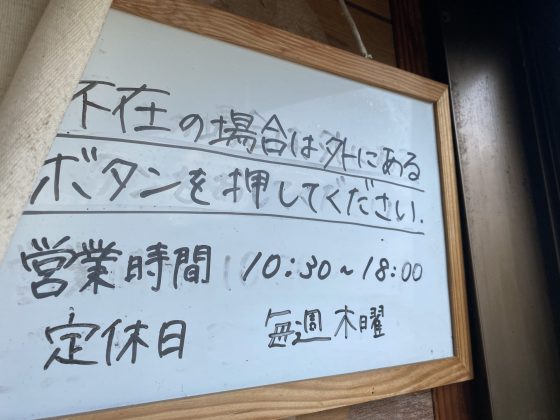 不在の場合は外にある
ボタンを押してください.
営業時間 10:30~18:00
定休日 毎週木曜